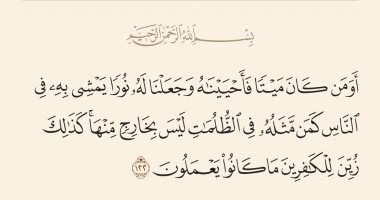 بِسْمِ اللَّهِ الرَّحْمَٰنِ الرَّحِيمِ
أَوَمَن كَانَ مَيْتًا فَأَحْيَيْنَٰهُ وَجَعَلْنَا لَهُۥ نُورًا يَمْشِى بِهِۦ فِى
ٱلنَّاسِ كَمَن مَّثَلُهُۥ فِى ٱلظُّلُمَٰتِ لَيْسَ بِخَارِجٍ مِّنْهَا ۚ كَذَٰلِكَ
زُيِّنَ لِلْكَٰفِرِينَ مَا كَانُوا۟ يَعْمَلُونَ ١٢٢